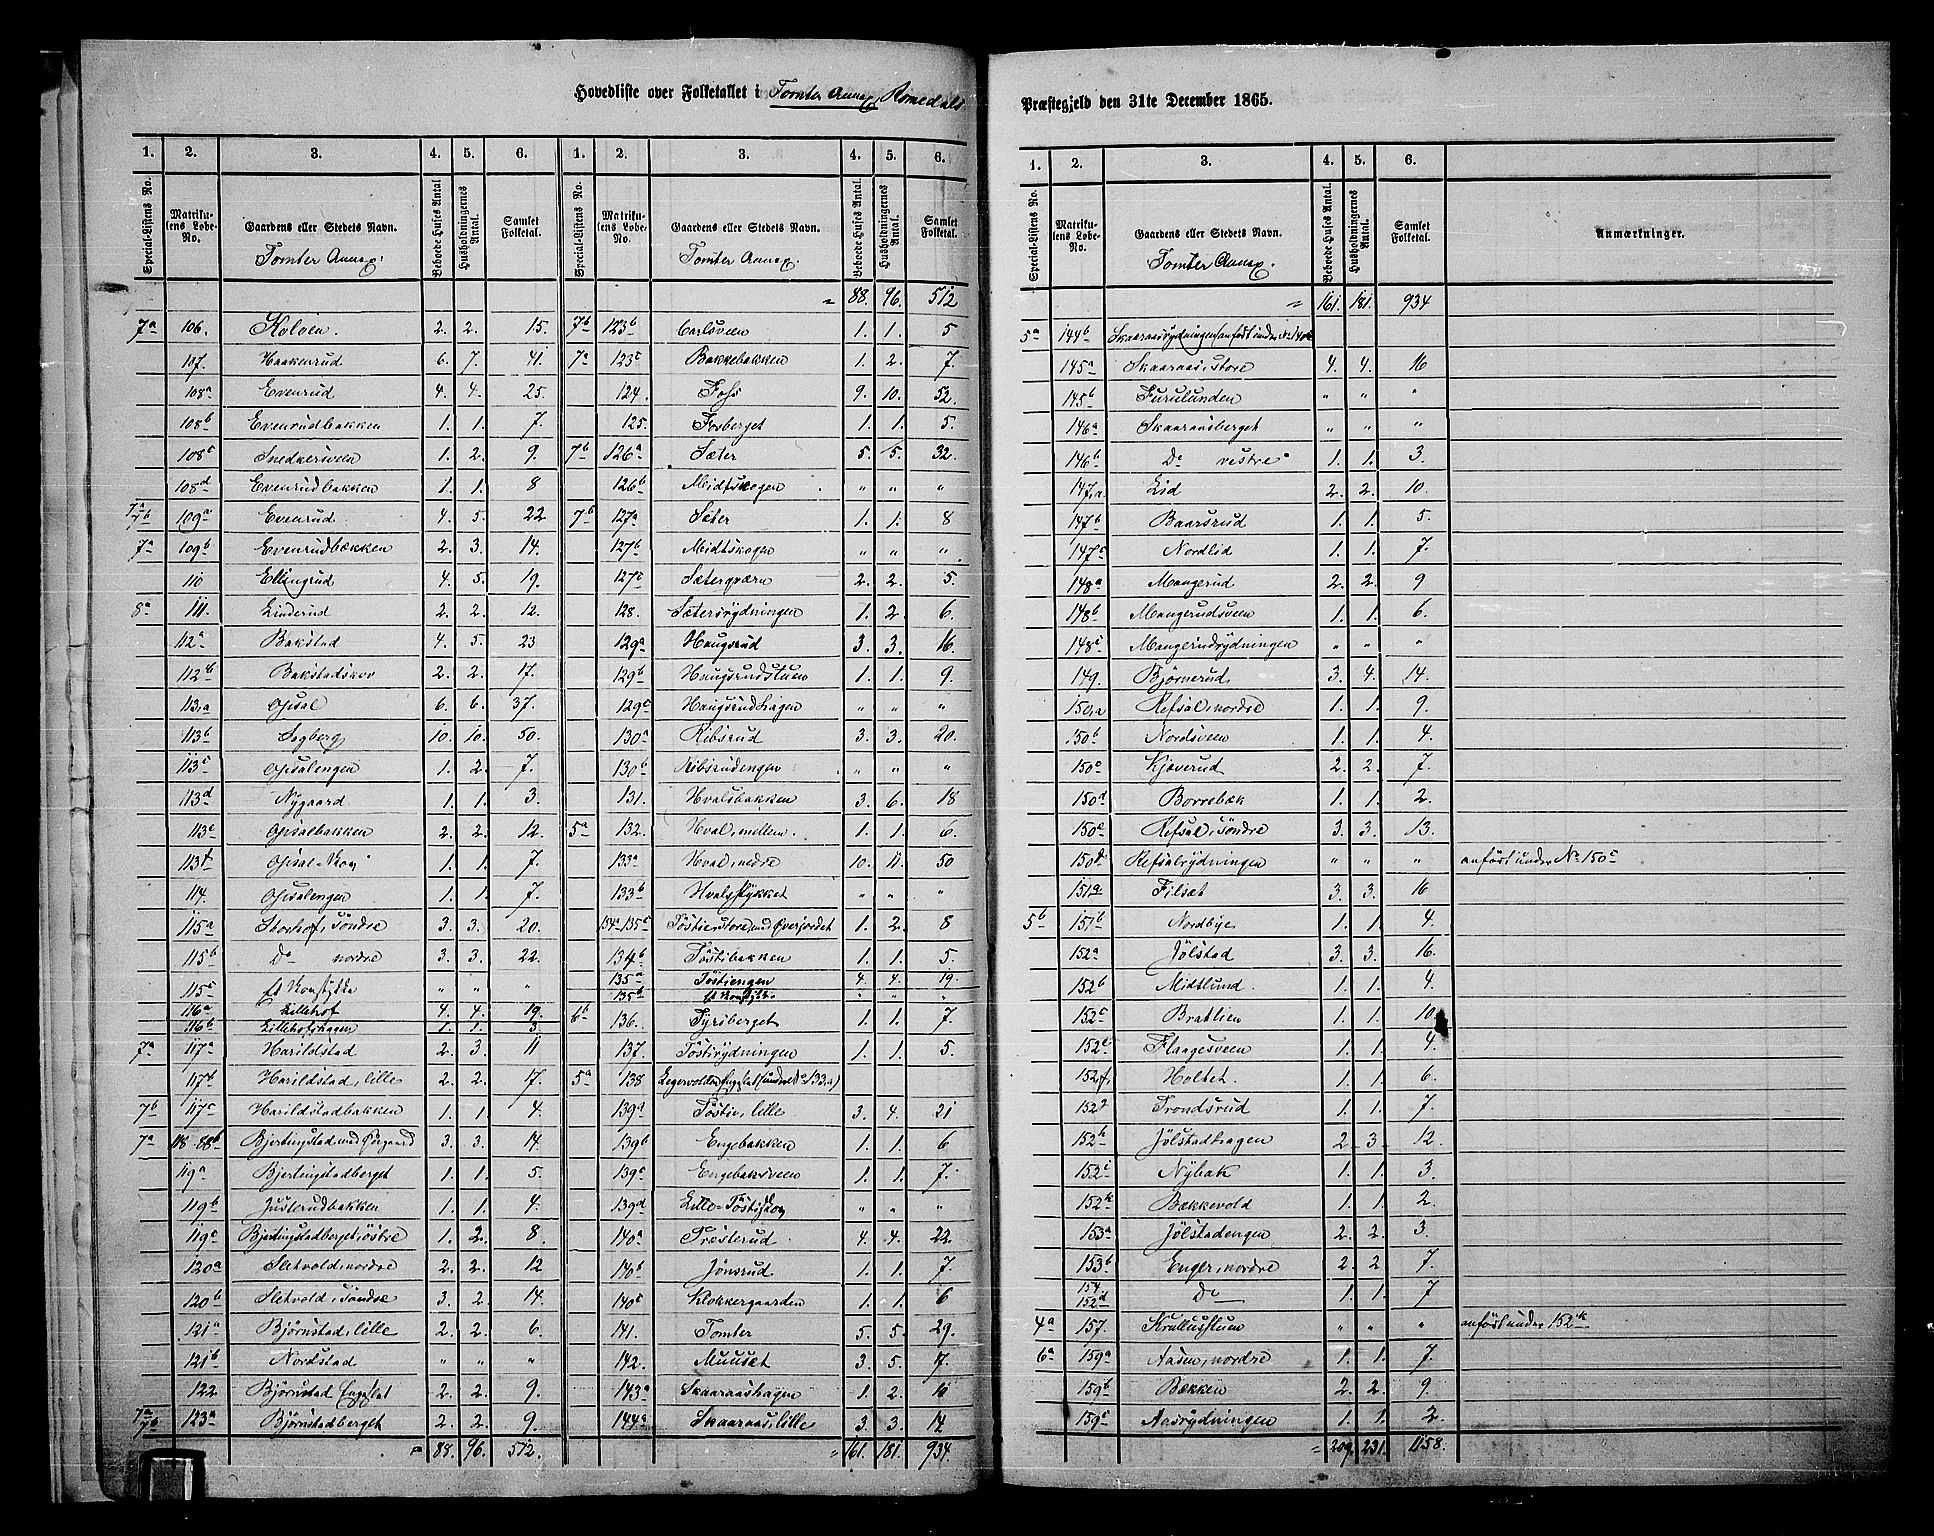 Hovedliste over Folketallet i Tomter Annex, Romedals
1. 2. 3. 4. 5. 6. 1. 2. 3. 4. 5. 6.
Special-Listens No. Matrikulens Løbe-No. Gaardens eller Stedets Navn. Beboede Huses Antal Husholdningernes Antal. Samlet Folketal. Special-Listens No. Matrikulens Løbe-No. Gaardens eller Stedets Navn. Beboede Huses Antal. Husholdningernes Antal. Samlet Folketal.
Tomter Annex. Tomter Annex.
" 88. 96. 512
7a 106. Kolven. 2. 2. 15. 7b 123b Carlsveen 1. 1. 5
107. Haakenrud 6. 7. 41. 7a 123c Bakkebakken 1. 2. 7.
108a Evenrud 4. 4. 25. 124. Fofs 9. 10. 52.
108b Evenrudbakken 1. 1. 7. 125. Fosberget 1. 1. 5.
108c Snedkersveen 1. 2. 9. 7b 126a Sæter 5. 5. 32.
108d Evenrudbakken 1. 1. 8 126b Midtskogen " " "
7a 7b 109a Evenrud 4. 5. 22 7b 127a Sæter 1. 1. 8
7a 109b Evenrudbækken 2. 3. 14. 127b Midtskogen " " "
110 Ellingrud 4. 5. 19. 127c Sæterqværn 2. 2. 5
8a 111. Linderud 2. 2. 12. 128. Sætersrydningen 1. 2. 6.
112a Bakstad 4. 5. 23 129a Haugsrud 3. 3. 16.
112b Bakstadskov 2. 2. 17. 129b Haugsrudstuen 1. 1. 9.
113a Opsal 6. 6. 37. 129c Haugsrudhagen " " "
113b Sogberg 10. 10. 50. 130a Ribsrud 3. 3. 20.
113c Opsalengen 1. 2. 7. 130b Ribsrudengen " " "
113d Nygaard 1. 1. 3. 131. Hvalsbakken 3. 6. 18
113e Opsalbakken 2. 2. 12. 5a 132. Hval, mellem. 1. 1. 6.
113f Opsal-Kov 1. 1. 7. 133a Hval, nedre 10. 11. 50
114. Opsalengen 1. 1. 7. 133b Hvalsstykket " " "
115a Storhof, Söndre 3. 3. 20. 134a-135c Töstie, store, med Øverjordet 1. 2. 8
115b Do nordre 3. 3. 22. 134b Töstibakken 1. 1. 5.
115c " " " 135a Töstiengen 4. 4. 19.
116a Lillehof 4. 4. 19. 135b " " "
116b Lillehofshagen 1. 1. 3 6b 136. Tyrsberget 1. 1. 7.
7a 117a Harildstad 2. 3. 11 137. Töstirydningen 1. 1. 5.
117b Harildstad, lille 2. 2. 17. 5a 138
7b 117c Harildstadbakken 1. 1. 4. 139a Töstie, lille 3. 4. 21
7a 118-88b Bjertingstad med 3. 3. 14. 139b Engebakken 1. 1. 6
119a Bjertingstadberget 1. 1. 5. 139c Engebaksveen 1. 1. 7.
119b Justerudbakken 1. 1. 4. 139d Lille-Töstiskov " " "
119c Bjertingstadberget, östre 1. 2. 8. 140a Træsterud 4. 4. 22.
120a Sletvold, nordre 2. 2. 12 140b Jönsrud 1. 1. 7.
120b Sletvold, Söndre 3. 2. 14. 140c Klokkergaarden 1. 1. 6
121a Björnstad, lille 2. 2. 6. 141. Tomter 5. 5. 29.
121b Nordstad " " " 142. Muuset 3. 5. 17.
122. Björnstad Engslet 2. 2. 9. 143a Skaaraashagen 1. 2. 10
7a 7b 123a Björnstadberget 2. 2. 9. 144a Skaaraas, lille 3. 3. 14
" 88. 96. 512. " 161. 181. 934.
Præstegjeld den 31te December 1865.
1. 2. 3. 4. 5. 6.
Special-Listens No. Matrikulens Løbe-No. Gaardens eller Stedets Navn. Beboede Huses Antal. Husholdningernes Antal. Samlet Folketal. Anmærkninger.
Tomter Annex.
" 161. 181. 934
5a 144b Skaaraasrydningen (anfört under No
145a Skaaraas, store 4. 4. 16
145b Furulunden " " "
146a Skaaraasberget " " "
146b Do vestre 1. 1. 3.
147a Lid 2. 2. 10.
147b Baarsrud 1. 1. 5.
147c Nordlid 1. 1. 7.
148a Mangerud 2. 2. 9
148b Mangerudsveen 1. 1. 6.
148c Mangerudrydningen " " "
149. Björnerud 3. 4. 14.
150a Refsal, nordre 1. 1. 9.
150b Nordsveen 1. 1. 4.
150c Kjöverud 2. 2. 7.
150d Borrebæk 1. 1. 2.
150e Refsal, Söndre 3. 3. 13.
150f Refsalrydningen " " " anfört under No 150c
151a Filset 3. 3. 16
5b 151b Nordbye 1. 1. 4.
152a Jölstad 3. 3. 16.
152b Midtlund 1. 1. 4.
152c Bratlien 1. 1. 10.
152e Flaagesveen 1. 1. 4.
152f. Holtet. 1. 1. 6.
152g Trondsrud 1. 1. 7.
152h Jölstadhagen 2. 3. 12.
152i Nybak 1. 1. 3
152k Bækkevold 1. 1. 2.
153a Jölstadengen 2. 2. 3.
153b Enger, nordre 2. 2. 7.
154 152d Do 1. 1. 7
4a 157. Krullusstuen " " " anfört under 152k
6a 159a Aasen, nordre 1. 1. 7.
159b Bækken 2. 2. 9.
159c Aasrydningen 1. 1. 2.
" 209. 231. 1158.